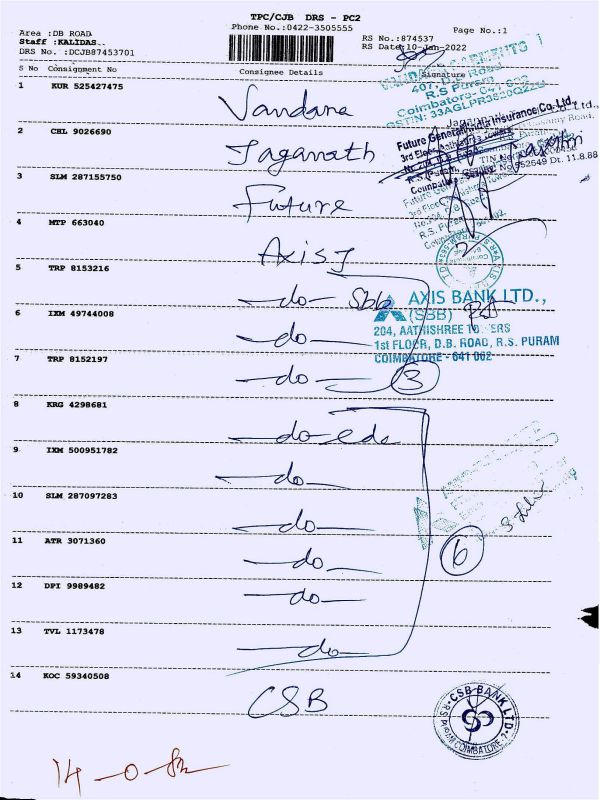 TPC/CJB DRS - PC2
Phone No.:0422-3505555
Page No.:1
Area :DB ROAD
RS No.:874537
Staff :KALIDAS..
RS Date:10-Jan-2022
DRS No. :DCJB87453701
S No Consignment No Consignee Details Signature
1 KUR 525427475 Vandana
2 CHL 9026690 Jaganath
3 SLM 287155750 Future
4 MTP 663040 Axis
5 TRP 8153216 -do- Sbb
6 IXM 49744008 -do-
7 TRP 8152197 -do- 3
8 KRG 4298681 -do-
9 IXM 500951782 -do-
10 SLM 287097283 -do-
11 ATR 3071360 -do- 6
12 DPI 9989482 -do-
13 TVL 1173478 -do-
14 KOC 59340508 CSB
407, D.B. Road
R.S Puram
Coimbatore- 641 002
Future Generali India Insurance Co. Ltd.,
AXIS BANK LTD.,
(SBB)
204, AATHISHREE TOWERS
1st FLOOR, D.B. ROAD, R.S. PURAM
COIMBATORE - 641 002
CSB BANK LTD
R.S. PURAM COIMBATORE-2
14 - 0 -